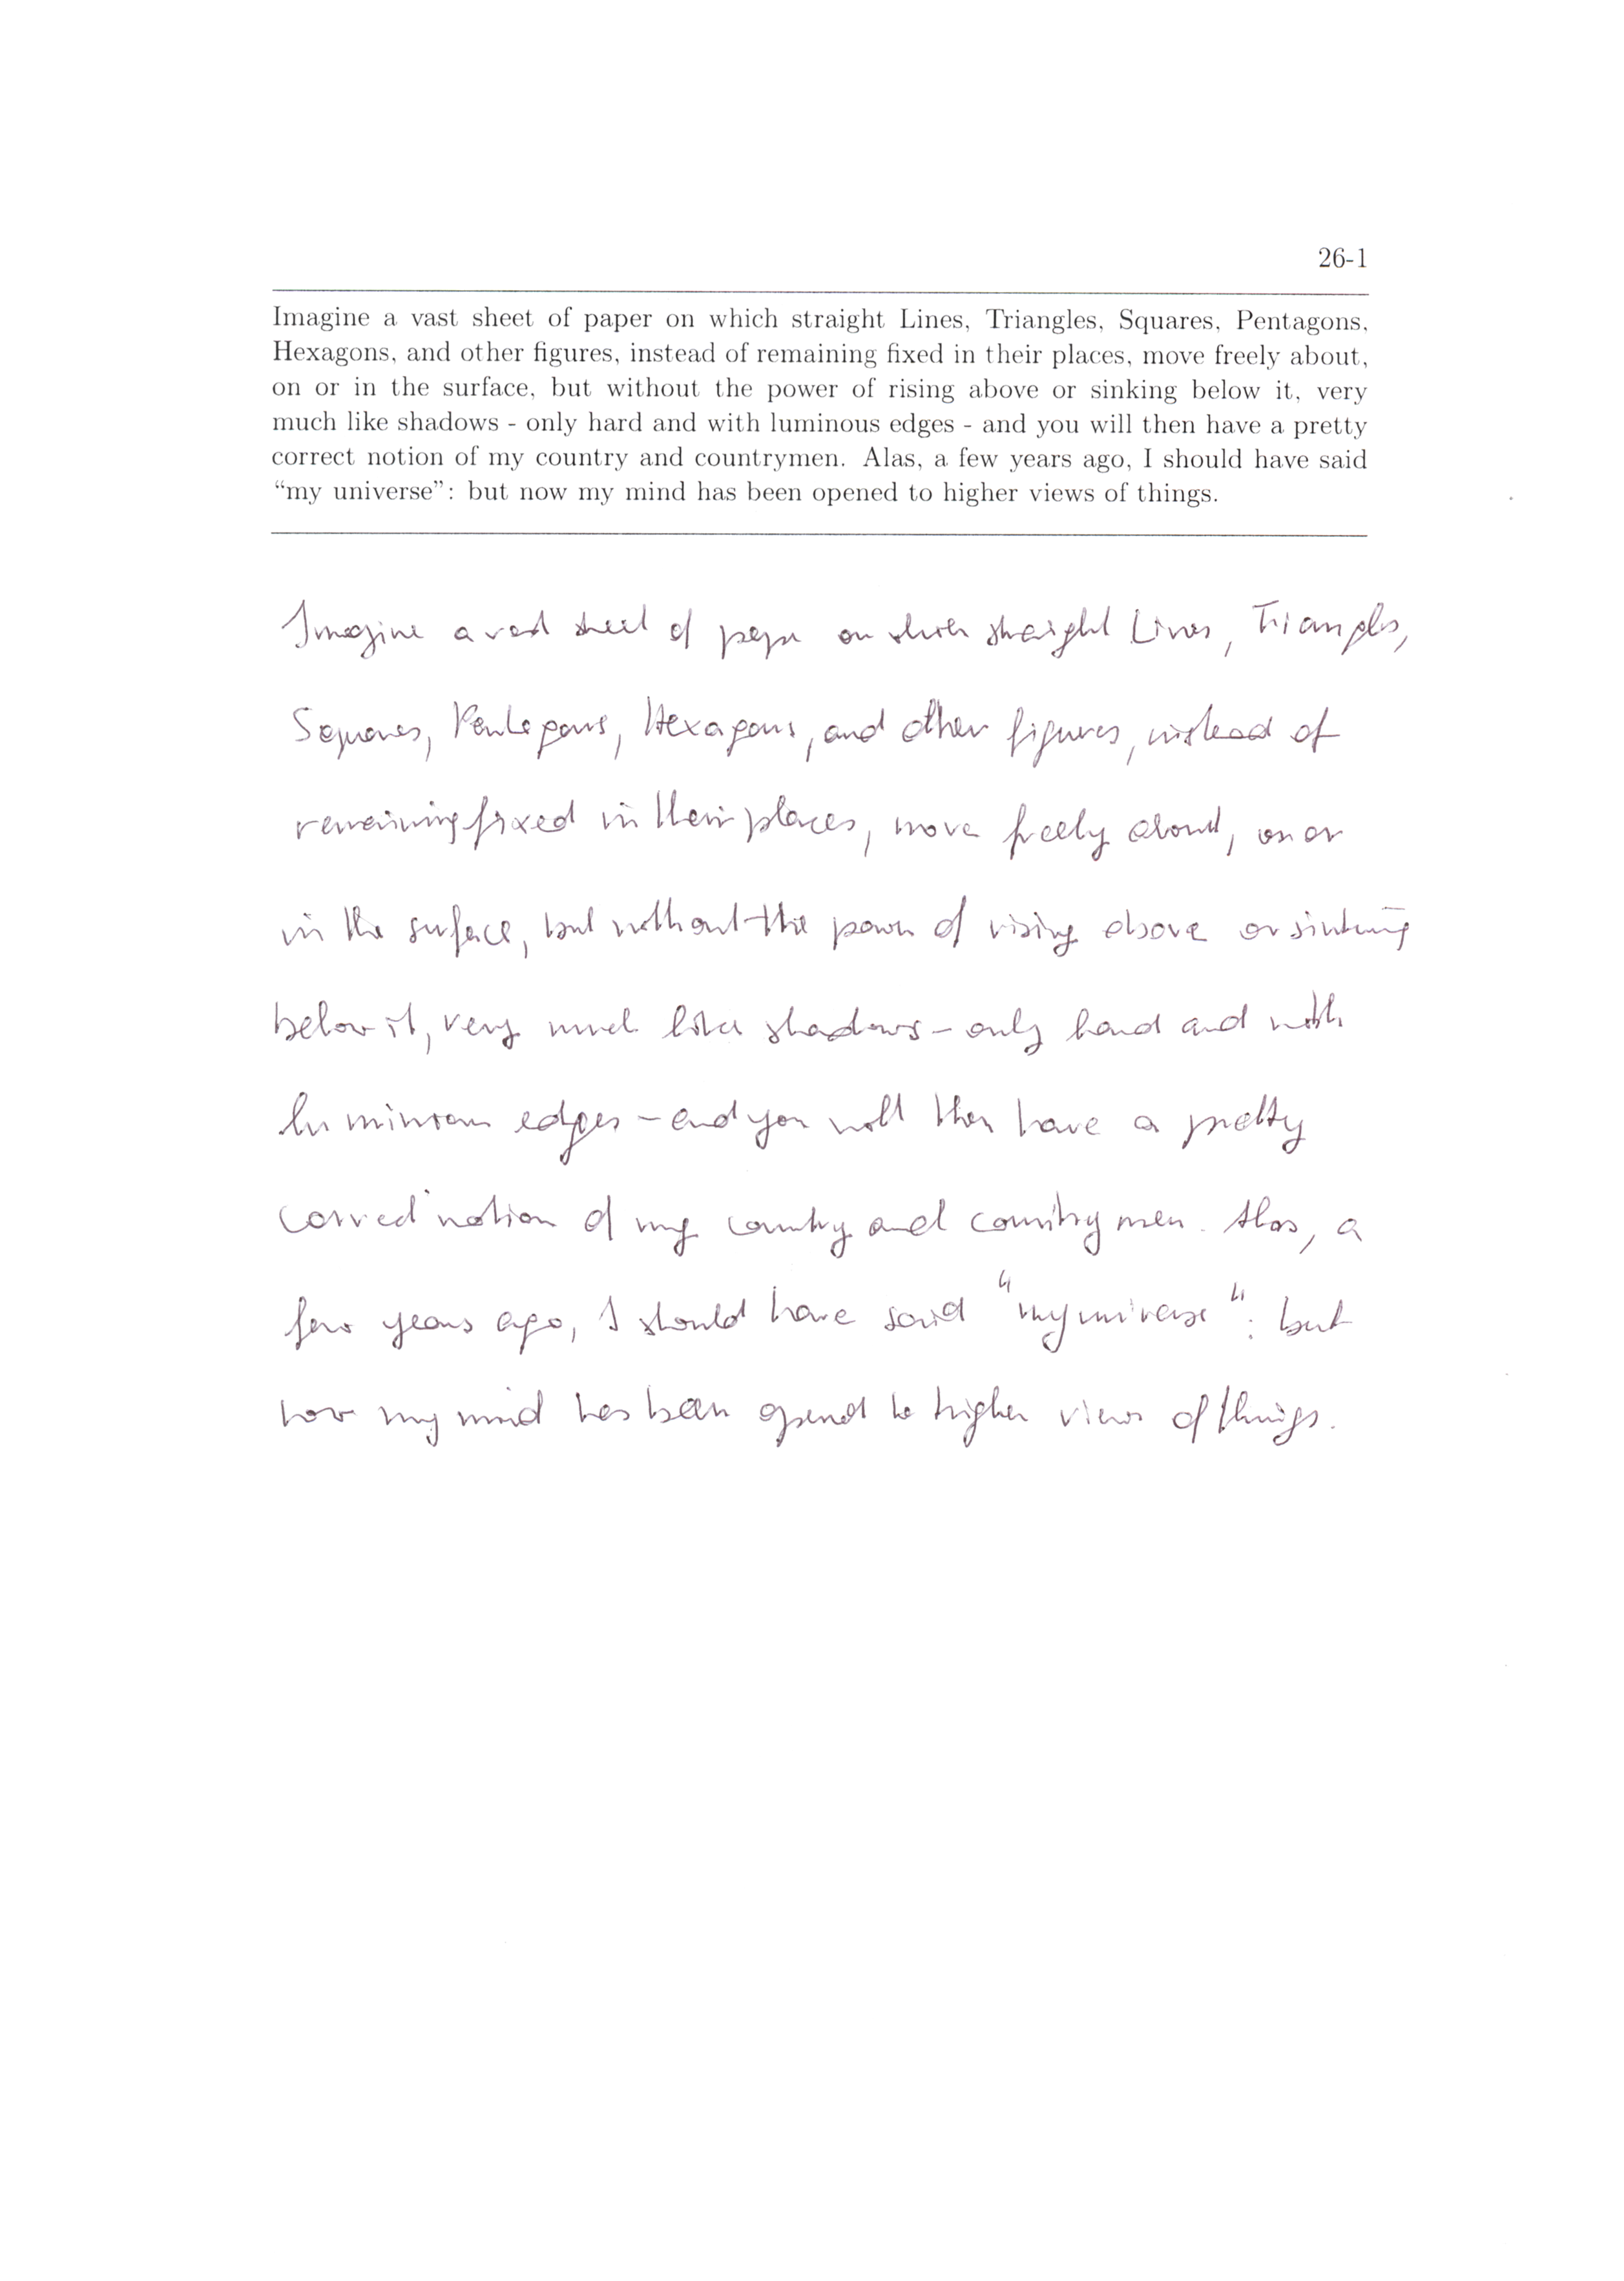 26-1
Imagine a vast sheet of paper on which straight Lines, Triangles, Squares, Pentagons,
Hexagons, and other figures, instead of remaining fixed in their places, move freely about,
on or in the surface, but without the power of rising above or sinking below it, very
much like shadows - only hard and with luminous edges - and you will then have a pretty
correct notion of my country and countrymen. Alas, a few years ago, I should have said
“my universe”: but now my mind has been opened to higher views of things.
Imagine a vast sheet of paper on which straight Lines, Triangles,
Squares, Pentagons, Hexagons, and other figures, instead of
remaining fixed in their places, move freely about, on or
in the surface, but without the power of rising above or sinking
below it, very much like shadows - only hard and with
luminous edges - and you will then have a pretty
correct notion of my country and countrymen. Alas, a
few years ago, I should have said "my universe": but
now my mind has been opened to higher views of things.